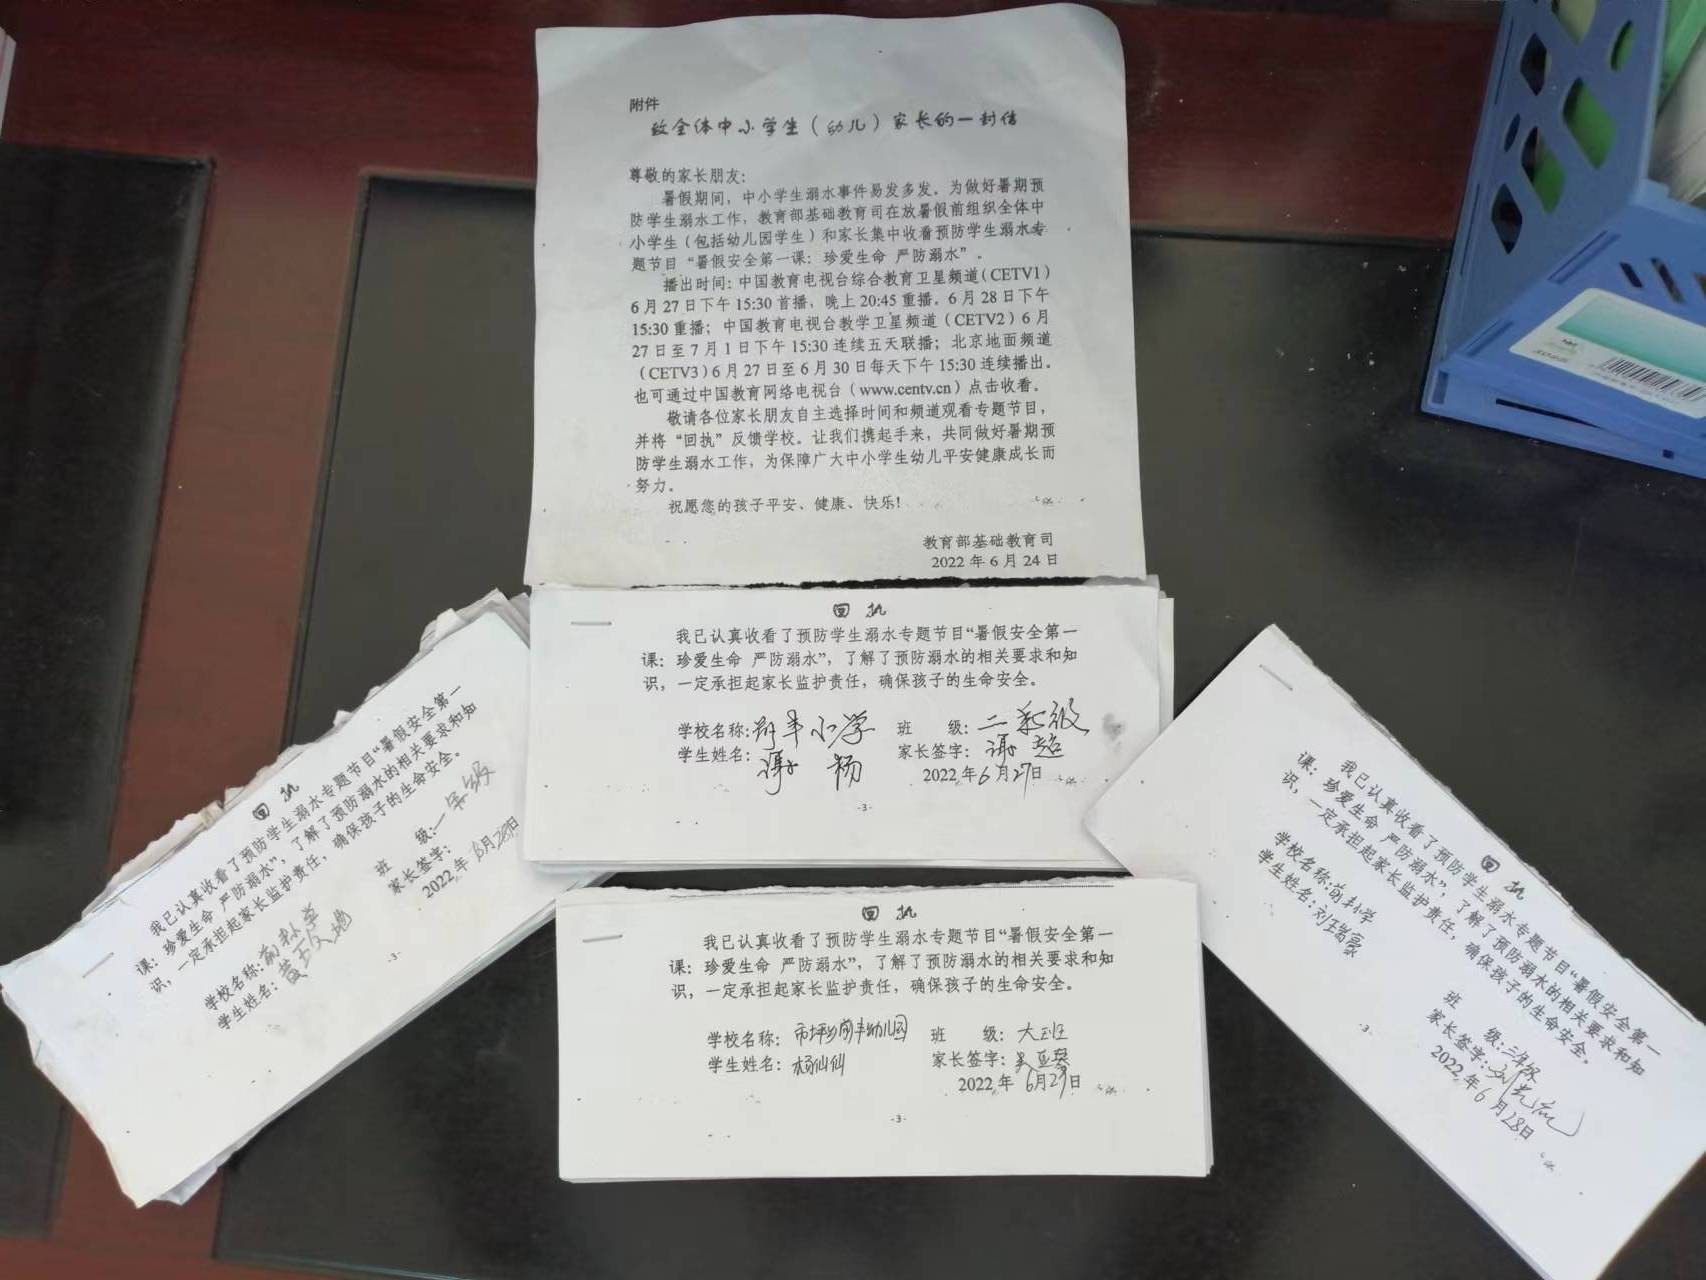 附件
致全体中小学生（幼儿）家长的一封信
尊敬的家长朋友：
暑假期间，中小学生溺水事件易发多发。为做好暑期预
防学生溺水工作，教育部基础教育司在放暑假前组织全体中
小学生（包括幼儿园学生）和家长集中收看预防学生溺水专
题节目“暑假安全第一课：珍爱生命 严防溺水”。
播出时间：中国教育电视台综合教育卫星频道（CETV1）
6月27日下午15:30首播，晚上20:45重播。6月28日下午
15:30重播；中国教育电视台教学卫星频道（CETV2）6月
27日至7月1日下午15:30连续五天联播；北京地面频道
（CETV3)6月27日至6月30日每天下午15:30连续播出。
也可通过中国教育网络电视台（www.centv.cn）点击收看。
敬请各位家长朋友自主选择时间和频道观看专题节目，
并将“回执”反馈学校。让我们携起手来，共同做好暑期预
防学生溺水工作，为保障广大中小学生幼儿平安健康成长而
努力。
祝愿您的孩子平安、健康、快乐！
教育部基础教育司
2022年6月24日
回执
我已认真收看了预防学生溺水专题节目“暑假安全第一
课：珍爱生命 严防溺水”，了解了预防溺水的相关要求和知
识，一定承担起家长监护责任，确保孩子的生命安全。
学校名称：前丰小学 班 级：二年级
学生姓名：谢杨 家长签字：谢超
2022年6月27日
-3-
回执
我已认真收看了预防学生溺水专题节目“暑假安全第一
课：珍爱生命 严防溺水”，了解了预防溺水的相关要求和知
识，一定承担起家长监护责任，确保孩子的生命安全。
学校名称：前丰小学 班 级：一年级
学生姓名： 家长签字：
2022年6月28日
-3-
回执
我已认真收看了预防学生溺水专题节目“暑假安全第一
课：珍爱生命 严防溺水”，了解了预防溺水的相关要求和知
识，一定承担起家长监护责任，确保孩子的生命安全。
学校名称：市坪乡前丰幼儿园 班 级：大班
学生姓名：杨仙仙 家长签字：
2022年6月29日
-3-
回执
我已认真收看了预防学生溺水专题节目“暑假安全第一
课：珍爱生命 严防溺水”，了解了预防溺水的相关要求和知
识，一定承担起家长监护责任，确保孩子的生命安全。
学校名称：前丰小学 班 级：三年级
学生姓名： 家长签字：
2022年6月28日
-3-